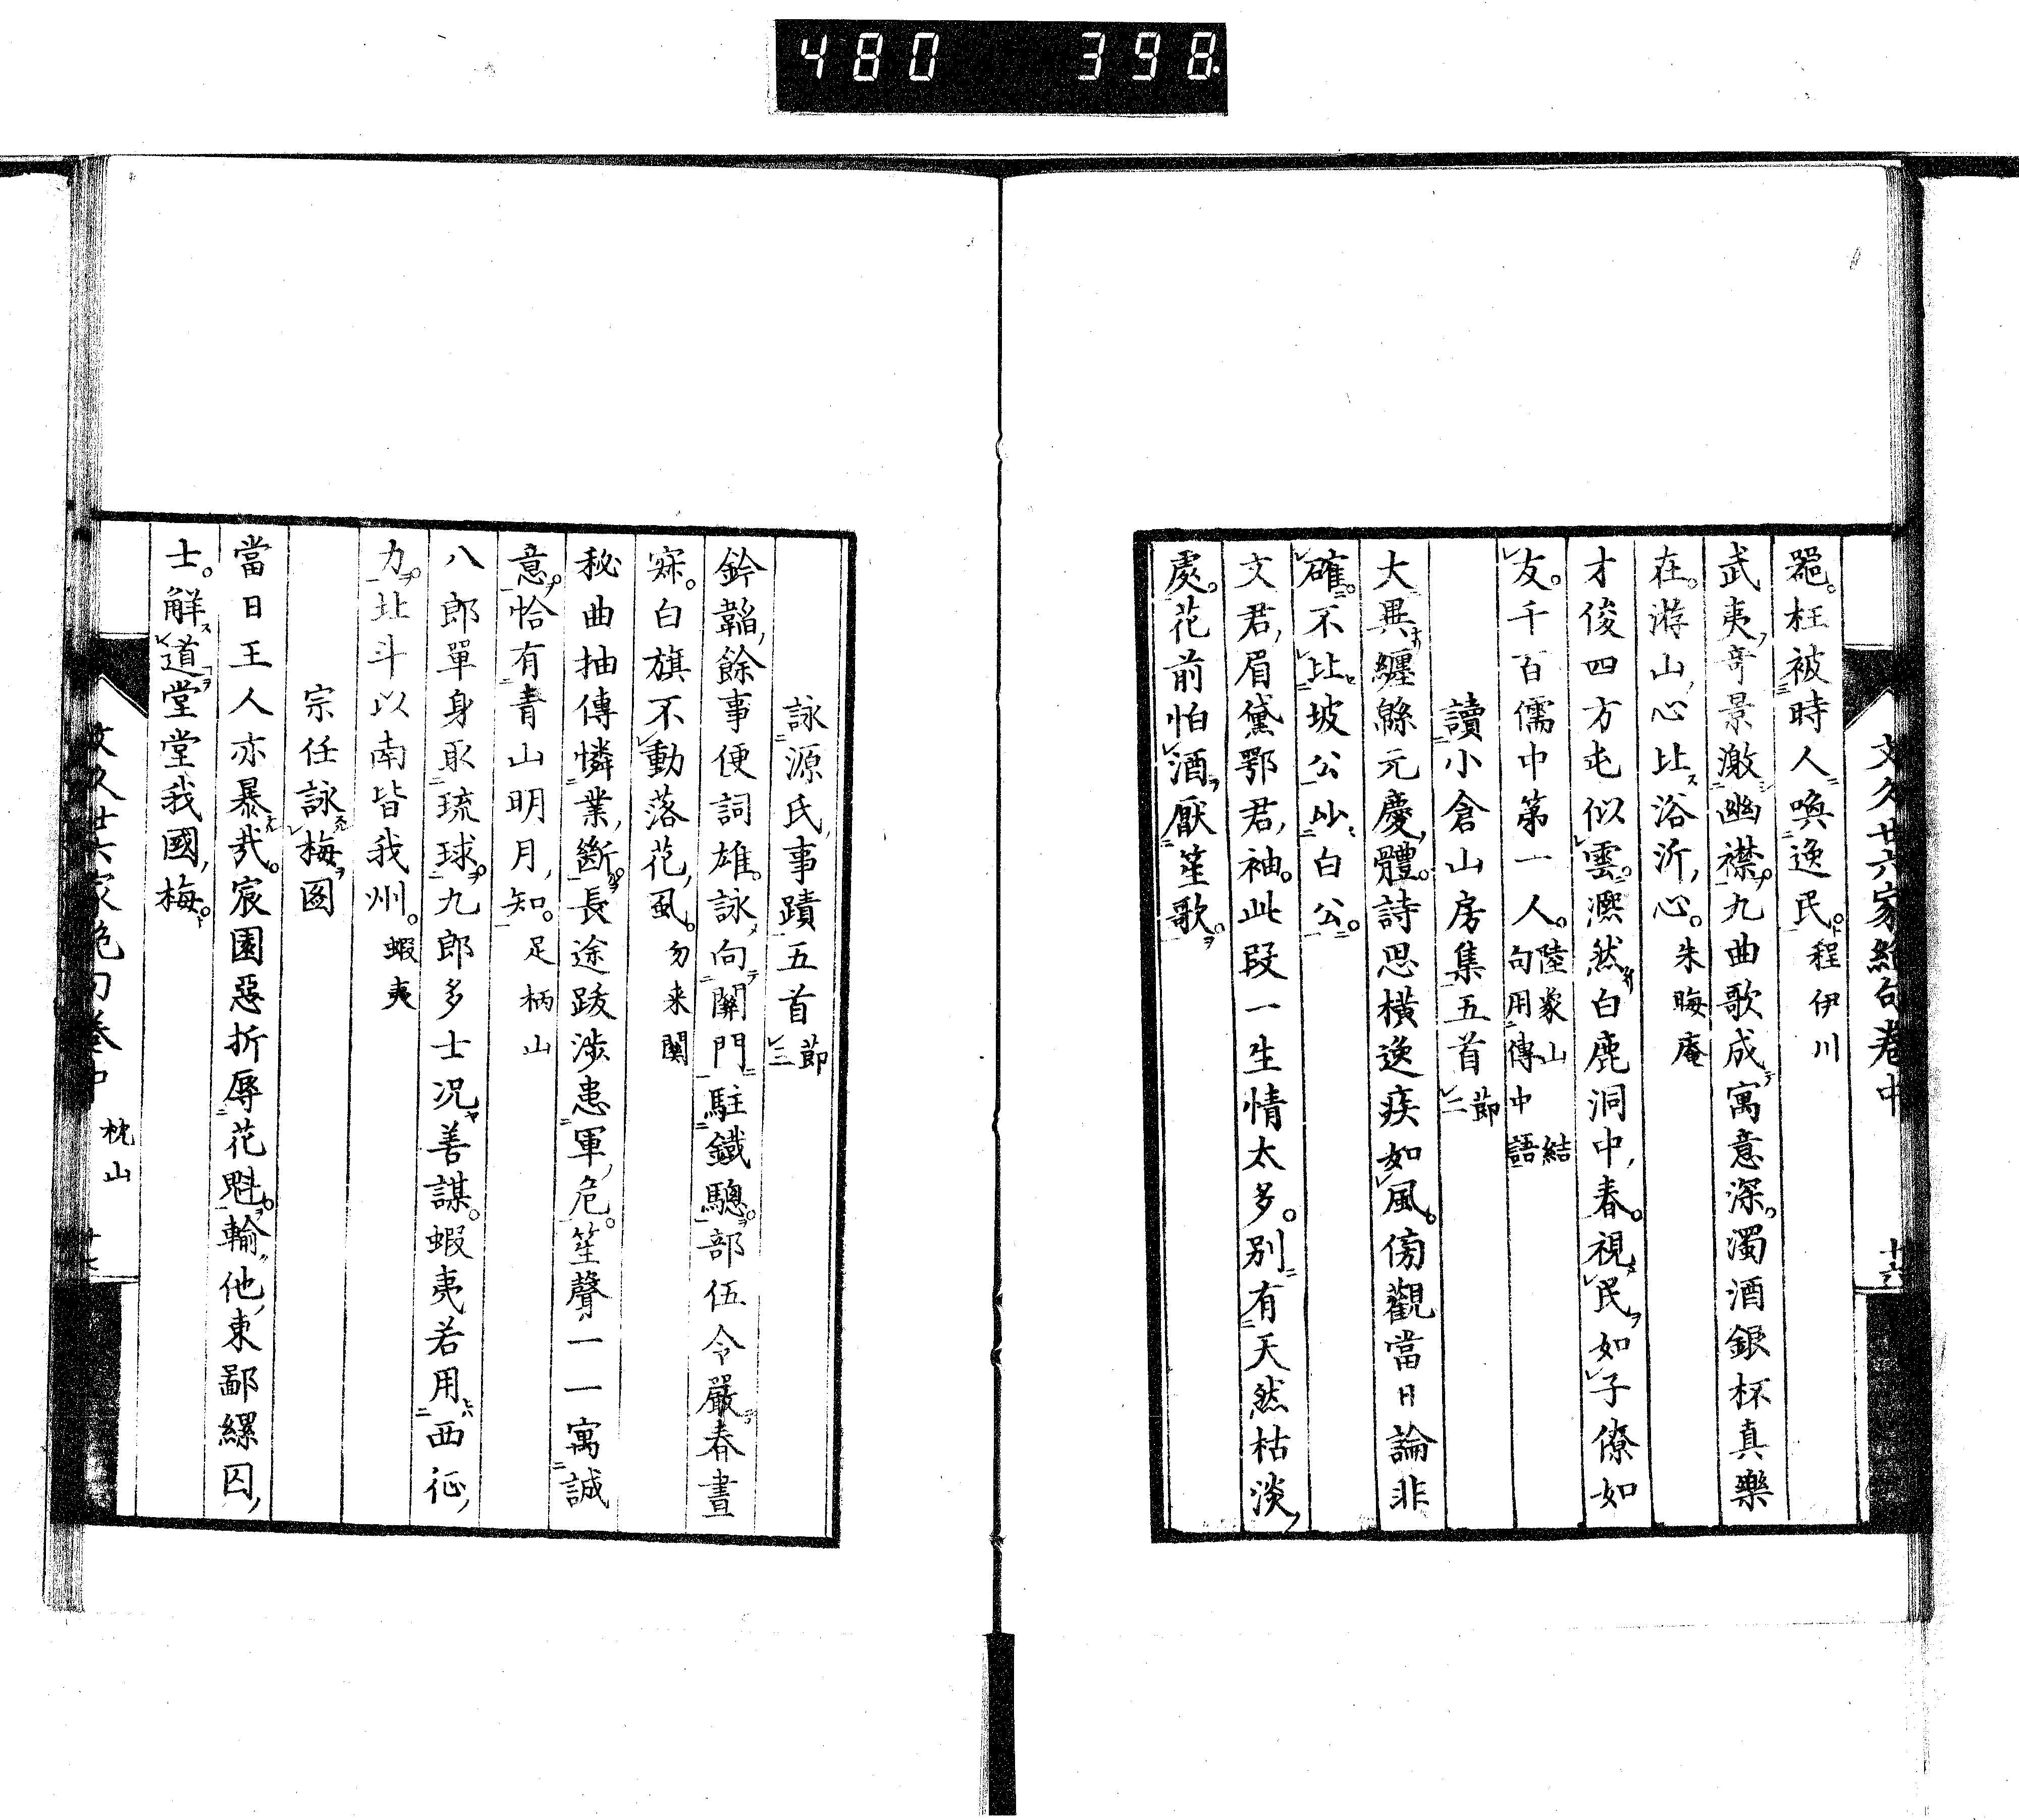 480 398
文久廿六家絶句卷中 十六
器。枉被時人喚逸民。程伊川
武夷奇景澂幽襟。九曲歌成寓意深。濁酒銀杯真樂
在。游山心比浴沂心。朱晦庵
才俊四方屯似雲。凞然白鹿洞中春。視民如子僚如
友。千百儒中第一人。陸象山 結句用傳中語
讀小倉山房集五首節二
大異纏緜元慶體。詩思橫逸疾如風。傍觀當日論非
確。不比坡公比白公。
文君眉黛鄂君袖。此段一生情太多。別有天然枯淡
處。花前怕酒厭笙歌。
詠源氏事蹟五首節三
鈐韜餘事便詞雄。詠向關門駐鐵驄。部伍令嚴春晝
寂。白旗不動落花風。勿来關
秘曲抽傳憐業斷。長途跋涉患軍危。笙聲一一寓誠
意。恰有青山明月知。足柄山
八郎單身取琉球。九郎多士况善謀。蝦夷若用西征
力。北斗以南皆我州。蝦夷
宗任詠梅圖
當日王人亦暴哉。宸園惡折辱花魁。輸他東鄙縲囚
士。解道堂堂我國梅。
文久廿六家絶句卷中 枕山 十七